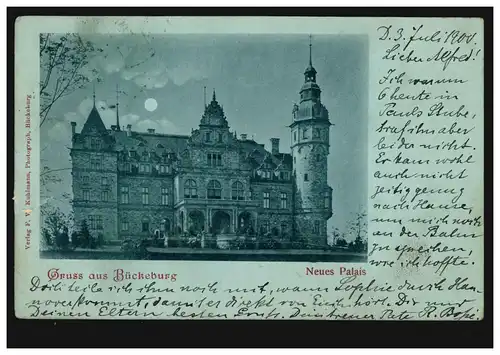 D. 3. Juli 1900.
Lieber Alfred!
Ich war um
6 heute in
Stube,
traf ihn aber
leider nicht.
Er kam wohl
auch nicht
zeitig genug
nach Hause,
um mich noch
an der Bahn
zu sprechen,
wie ich hoffte.
Verlag F. X. Kuhlmann, Photograph, Bückeburg.
Gruss aus Bückeburg
Neues Palais
Doch teile ich ihm noch mit, wann Sophie durch Han-
nover kommt, damit er direkt von Euch hört. Dir und
Deinen Eltern besten Gruß. Dein treuer Pate H.